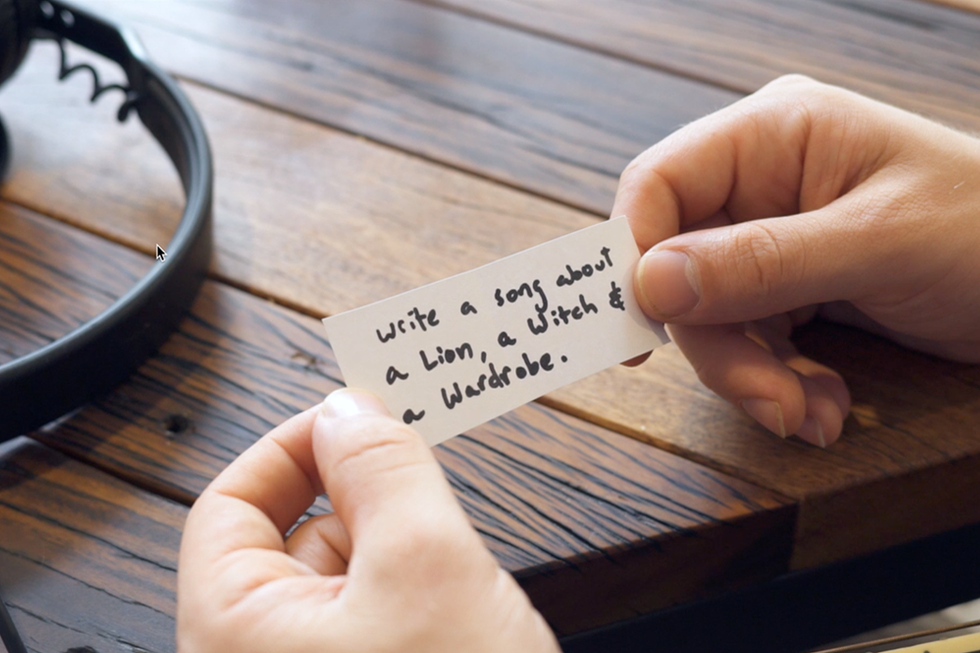 write a song about
a Lion, a Witch &
a Wardrobe.